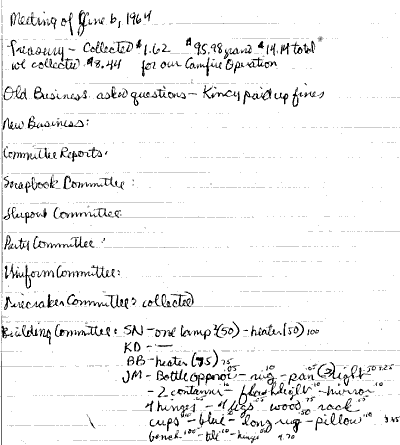 Meeting of June 6, 1964
Treasury - Collected $1.62 $95.98 grand $14.14 total
we collected $8.44 for our Campfire Operation
Old Business asked questions - Kincy paid up fines
New Business:
Committee Reports:
Scrapbook Committee:
Committee
Party Committee:
Uniform Committee:
Firecracker Committee: collected
Building Committee: SN - one lamp (50) - heater (50) 100
KD -
BB - heater (75) 75
JM - Bottle - rug - pan light
- 2 container - flashlight - mirror
4 hinges - 4 legs - wood - rack
cups - blue - long rug - pillow
bench - tile - hinge 4.70